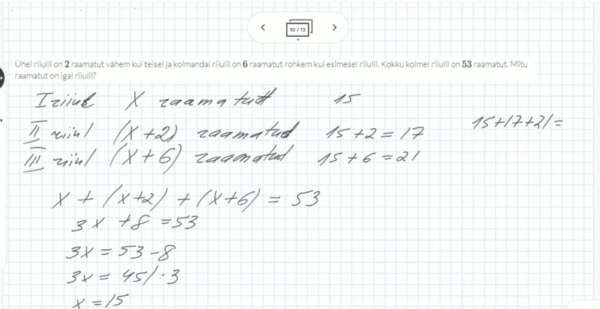 10 / 13
Ühel riiulil on 2 raamatut vähem kui teisel ja kolmandal riiulil on 6 raamatut rohkem kui esimesel riiulil. Kokku kolmel riiulil on 53 raamatut. Mitu
raamatut on igal riiulil?
I riiul X raamatut 15
II riiul (x+2) raamatud 15+2=17 15+17+21=
III riiul (x+6) raamatud 15+6=21
x + (x+2) + (x+6) = 53
3x +8 =53
3x = 53-8
3x = 45/:3
x =15